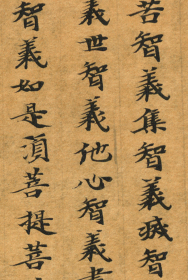 若智義集智義滅智
義世智義他心智義盡
智義如是須菩提菩